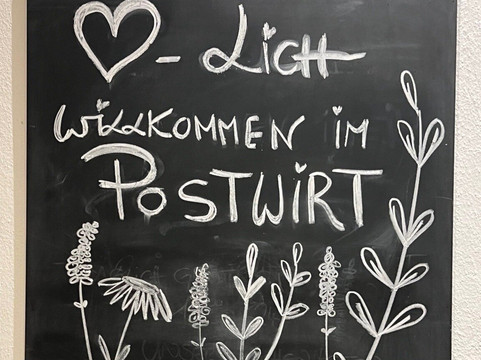 ♡-Lich
Willkommen im
Postwirt